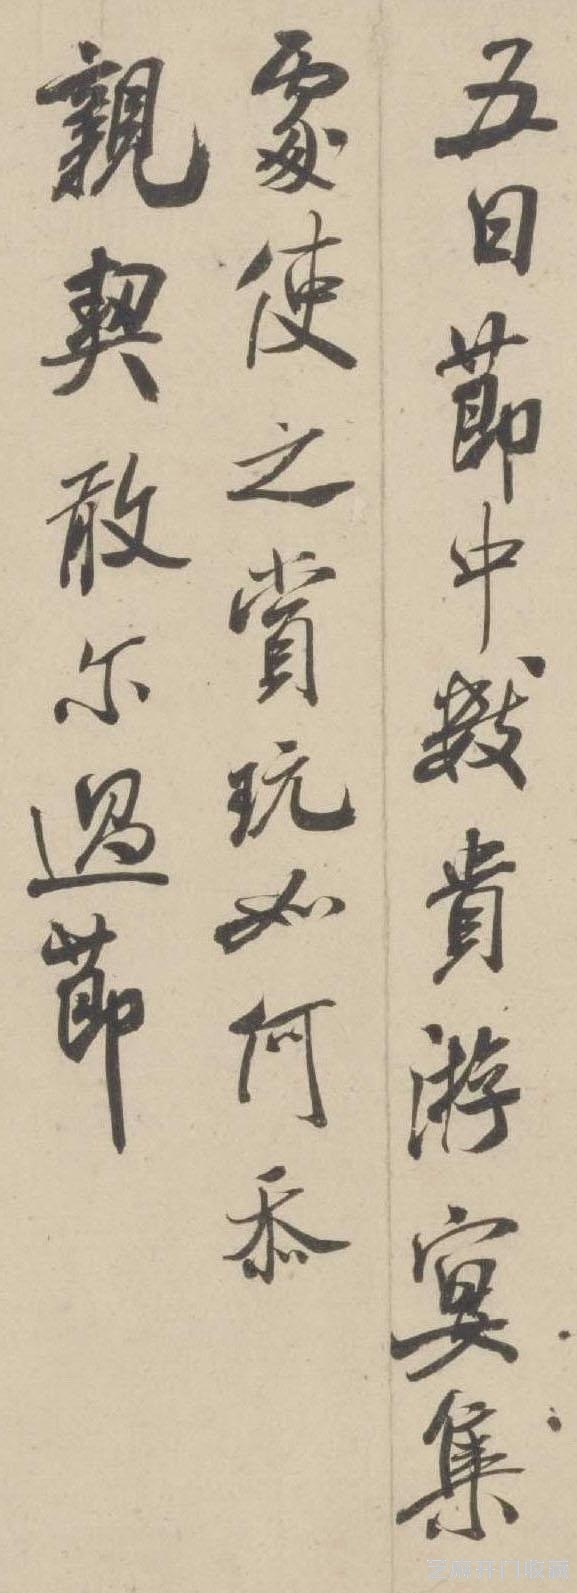 五日節中數貴游宴集
處使之賞玩如何忝
親契敢尓過節